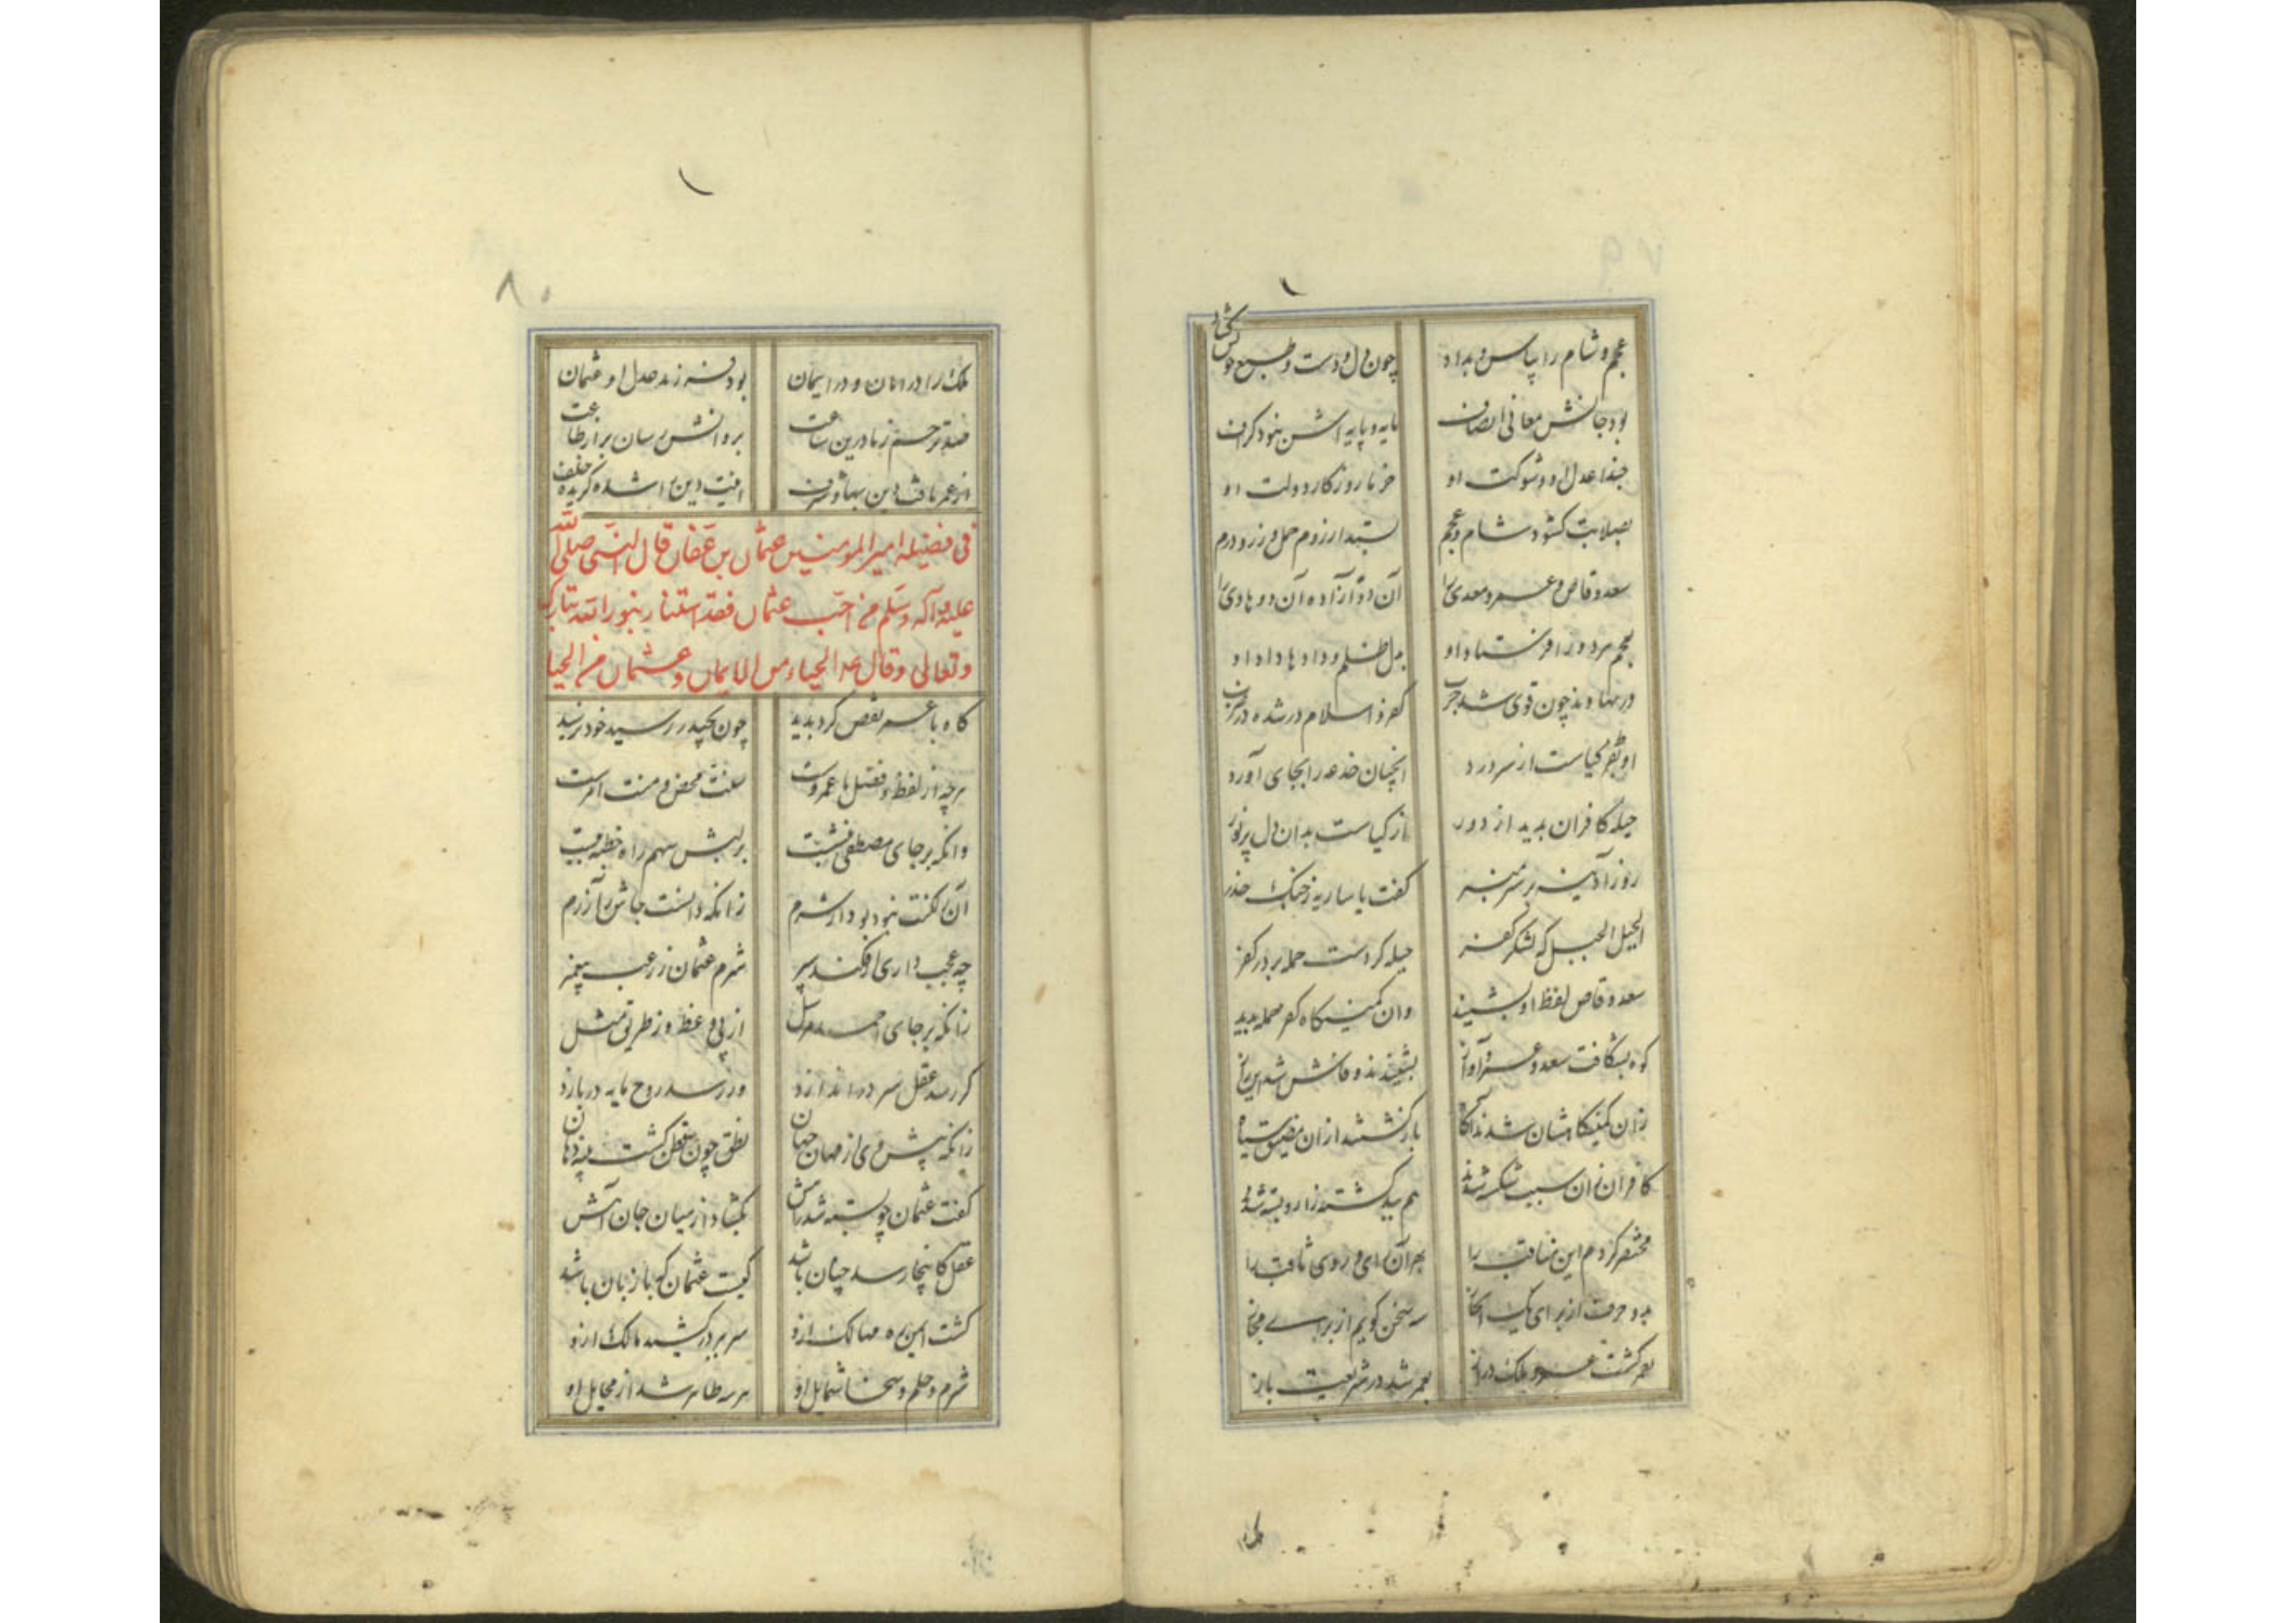 عجم و شام را بپاس و بداد چون دل و دست و طبع خوش بگشاد
بود جانش معانی انصاف مایه و پایه اش نبود گزاف
حبذا عدل او و شوکت او خرما روزگار دولت او
بصلابت گشود شام و عجم بستد از روم حمل و زر و درم
سعد وقاص و عمرو معدی را آن دو آزاده آن دو هادی را
بعجم هر دو را فرستاد او بدل ظلم دادها داد او
در نهاوند چون قوی شد حرب کفر و اسلام در شده در ضرب
او بفر کیاست از سر درد آنچنان خدعه را بجای آورد
حیله کافران بدید از دور از کیاست بدان دل پر نور
روز آدینه بر سر منبر گفت یا ساریه ز جنگ حذر
الجبل الجبل که لشکر کفر حیله کردست حمله بر در کفر
سعد وقاص لفظ او بشنید وان کمینگاه کفر جمله بدید
کوه بشکافت سعد و عمرو آواز بشنیدند و فاش شد این راز
زان کمینگاهشان شدند آگاه بازگشتند ازان مضیق سپاه
کافران زان سبب شکسته شدند هم بید کشته زار و بسته شدند
مختصر کردم این مناقب را بهر آن رای و روی ثاقب را
بدو حرف از برای یک انجاز سه سخن گویم از برای مجاز
بعمر گشت عمرو ملک دراز بعمر شد در شریعت باز
ملک
۸۰
ملک را در امان و در ایمان بود فرزند عدل او عثمان
صد ترحم ز ما درین ساعت بروانش رسان بر از طاعت
از عمر یافت دین بها و شرف یافت دین را شده گزیده خلف
فی فضیلة امیر المومنین عثمان بن عفان قال النبی صلی الله
علیه و آله و سلم من احب عثمان فقد استنار بنور الله تبارک
و تعالی و قال علیه الحیاء من الایمان و عثمان من الحیا
گاه با عمر نقص کرد بدید چون بحیدر رسید خود نرسید
هرچه از لفظ و فضل با عمروست سنت محض و منت امرست
وانکه بر جای مصطفی بنشست بر لبش سهم راه خطبه ببست
آن ز لکنت نبود بود از شرم زانکه دانست جاش را آزرم
چه عجب داری ار فکند سپر شرم عثمان ز رعب پیغمبر
زانکه بر جای احمد مرسل از پی وعظ و ز طریق مثل
گر رسد عقل سر در اندازد ور رسد روح مایه در بازد
زانکه پیش وی از مهان جهان نطق چون نقطه گشت پنبه دهان
گفت عثمان چو بسته شد راهش بگشاد از میان جان آهش
عقل کانجا رسد چنان باشد کیست عثمان که با زبان باشد
گشت ایمن ره مهالک ازو سر بر در کشید مالک ازو
شرم و حلم و سخا شمایل او هر سه ظاهر شد از مخایل او